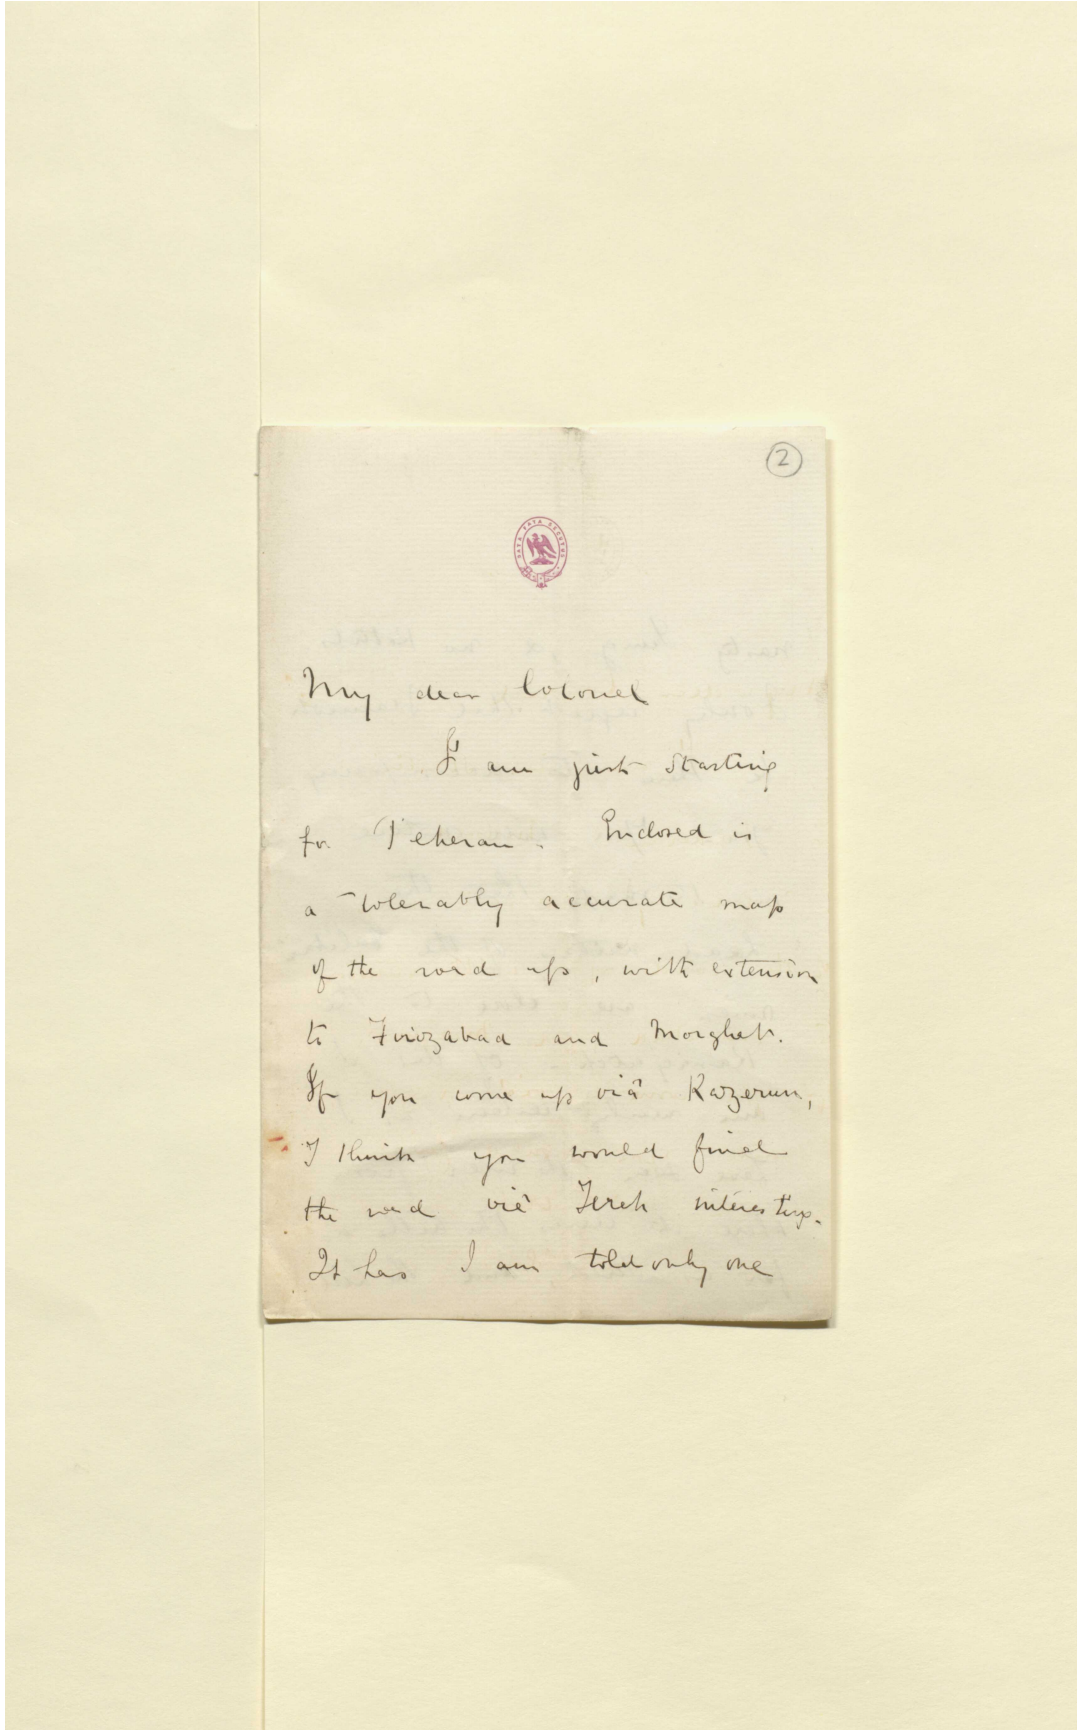 2
My dear Colonel
I am just starting
for Teheran. Enclosed is
a tolerably accurate map
of the road up, with extension
to Firozabad and Morghab.
If you come up viâ Kazerun,
I think you would find
the road viâ Jereh interesting.
It has I am told only one